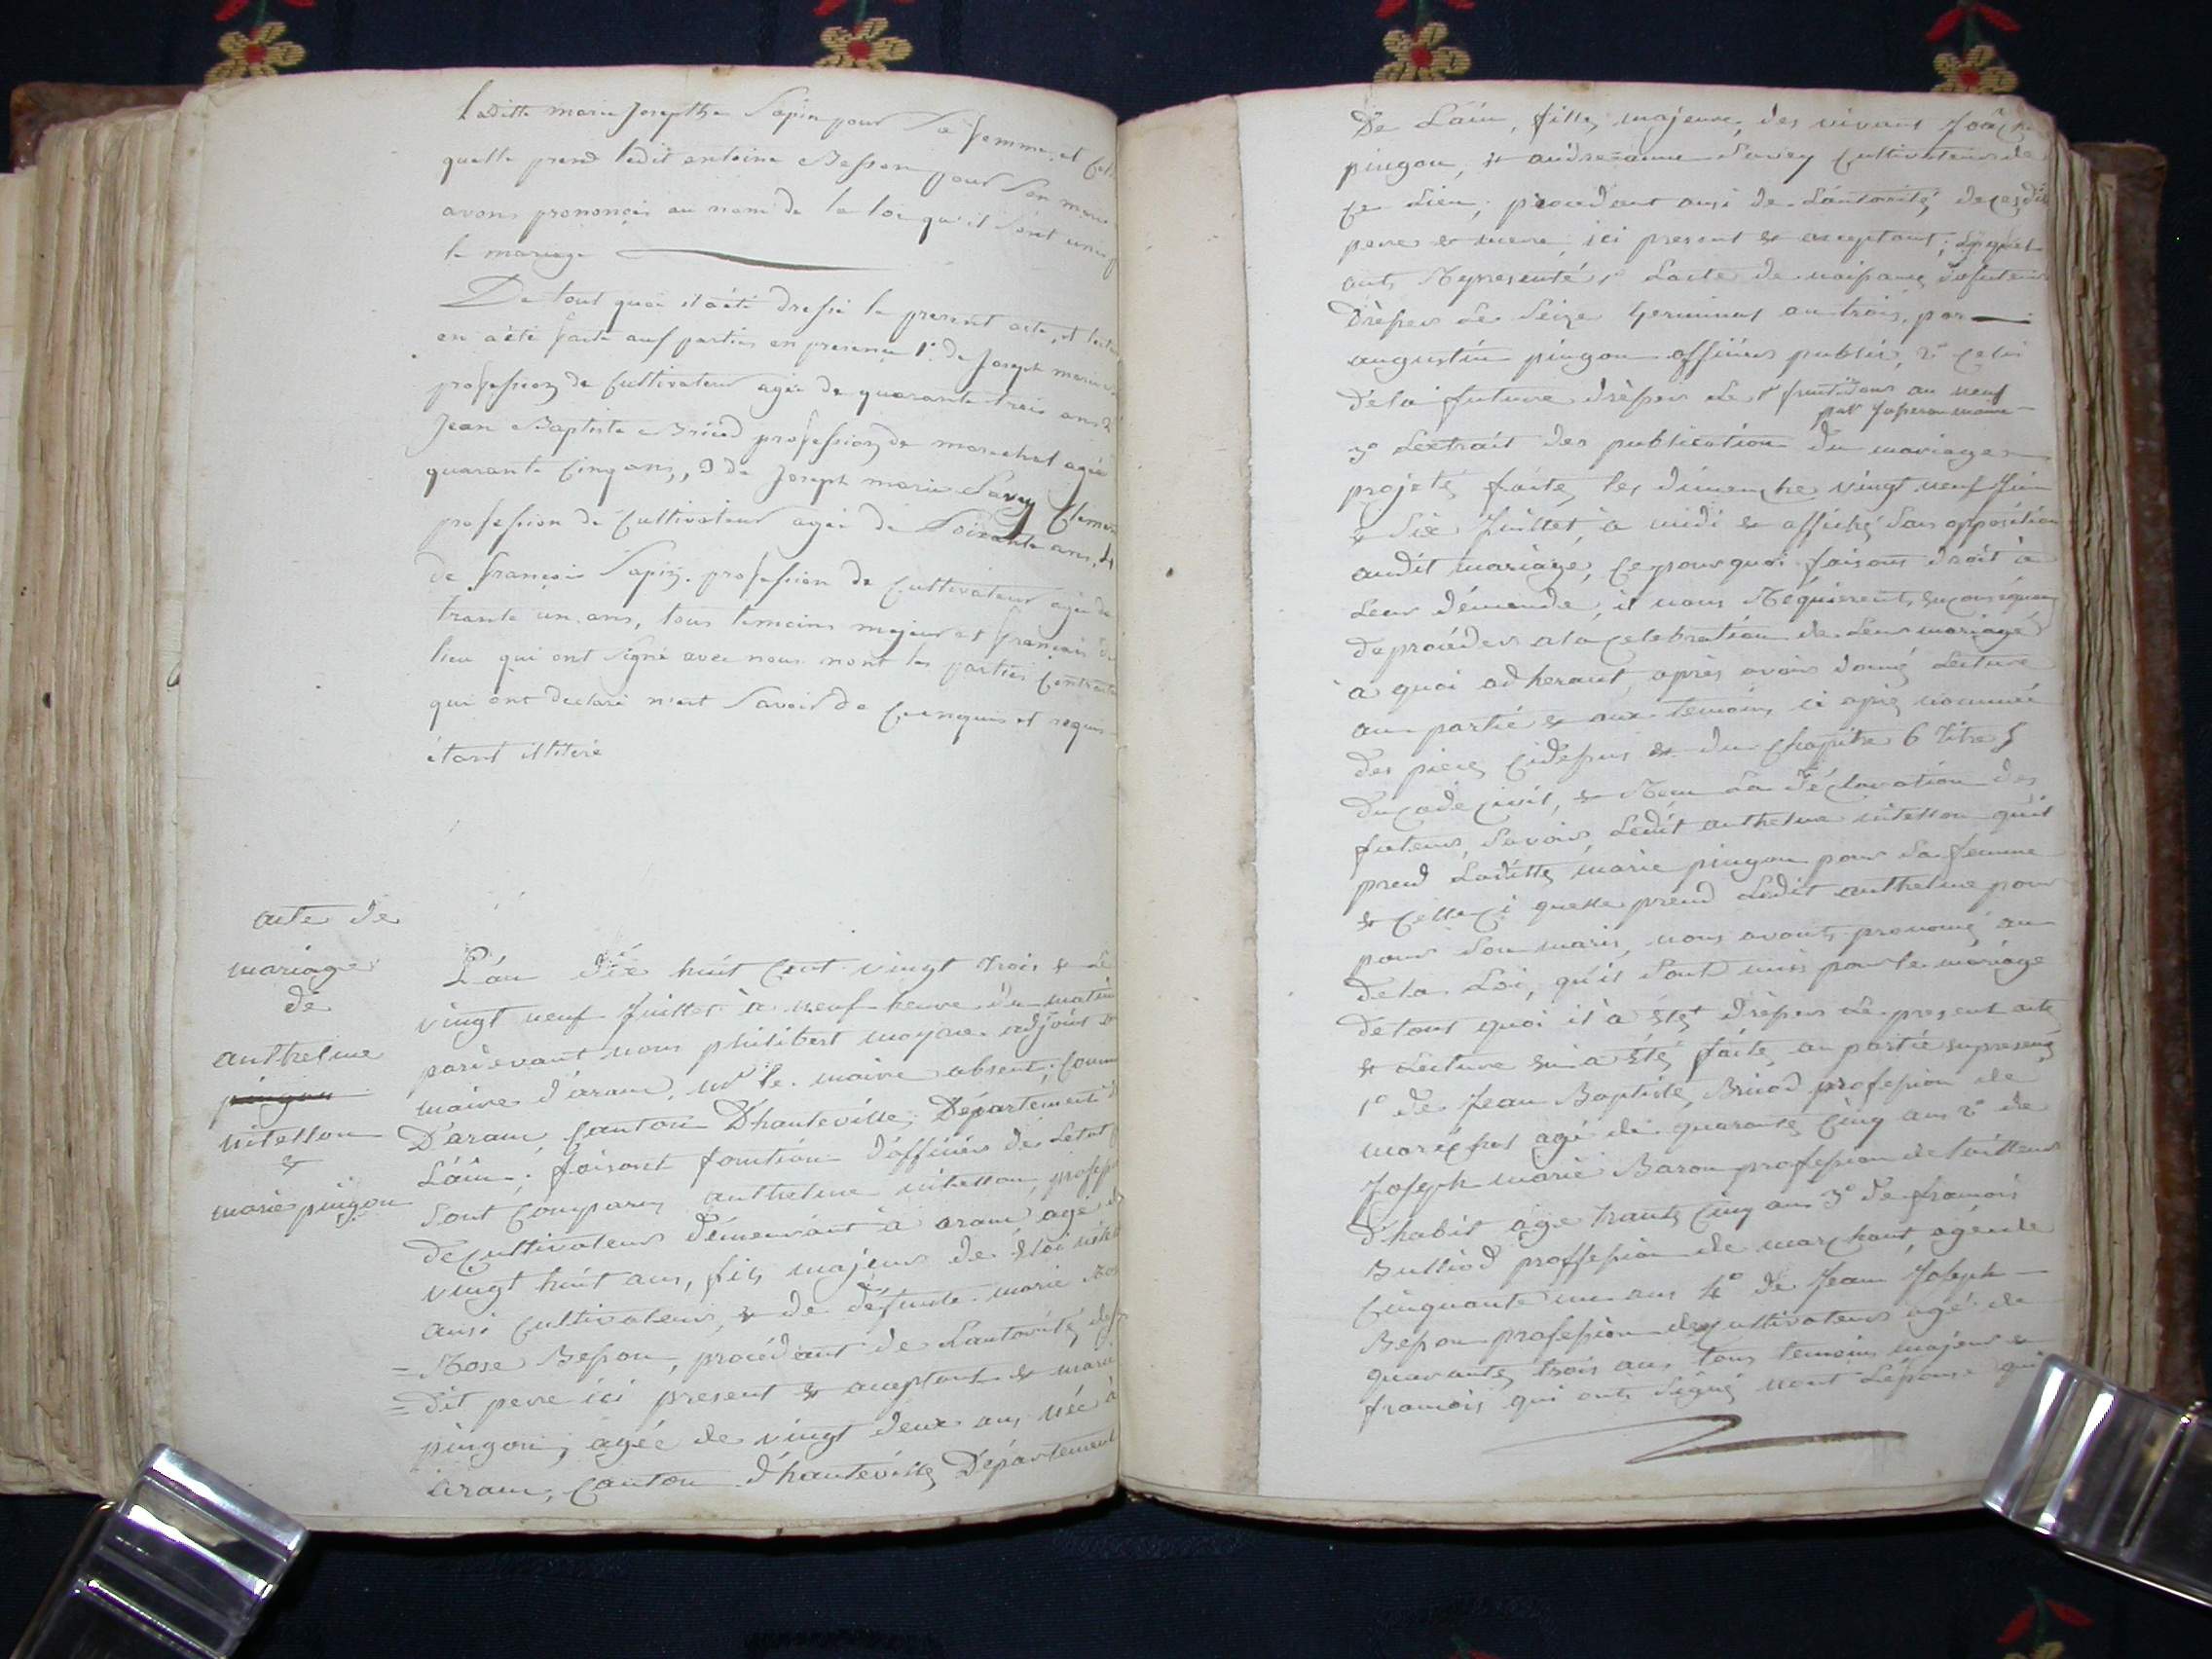 laditte marie Josephte Sapin pour sa femme, et
quelle prend ledit antoine Besson pour son mari
avons prononçés au nom de la loi qu'il sont unis
le mariage
De tout quoi il a été dressé le present acte, et
en a été faite aux parties en presence 1° de Joseph marie
profession de Cultivateur agée de quarante trois ans 2
Jean Baptiste Briod profession de marechal agée
quarante Cinq ans, 3 de Joseph marie Savey
profession de Cultivateur agée de Soixante ans, 4
de françois Sapin, profession de Cultivateur agée de
trante un ans, tous temoins majeur et français
lieu qui ont signé avec nous nont les parties
qui ont declaré n'ent savoir de et requis
étant illitéré
acte de
mariage
de
anthelme
pingon
vitellon
&
marie pingon
L'an dix huit cent vingt trois & le
vingt neuf Juillet à neuf heure du matin
pardevant nous philibert moyne adjoint
maire d'aranc, mr le maire absent,
D'aranc, Canton D'hauteville, Département
L'ain, faisant fonction d'officier de Letat
Sont Comparus anthelme vitellon,
De Cultivateur demeurant à aranc, agé
vingt huit ans, fils majeur de
ausi Cultivateur, & de défunte marie
= Rose Besson, procédant de Lautorité
= dit pere ici present & acceptant & marie
pingon, agée de vingt deux ans née à
aranc, Canton d'hauteville Département
De L'ain, fille majeure, des vivant
pingon, & andre=anne Savey Cultivateur de
Ce Lieu, procedant ausi de Lautorité de
pere & mere, ici present & acceptant;
ont Représenté 1° Lacte de naissance
Drèsser Le seize Germinal an trois, par
augustin pingon officier public, 2° Celui
de la future drèsser Le fructidor an neuf
par maire
3° Lextrait des publication du mariage
projeté faite les dimenche vingt neuf
& Six Juillet, à midi & affiché sans opposition
audit mariage, Ce pourquoi faisons droit à
Leur demande, il nous Réquierent,
de procéder a la Celebration de Leur mariage
à quoi adherant, après avoir donné Lecture
au partié & aux temoins ci après nommé
des piece Cidessus & du chapitre 6 titre 5
Du Code Civil, & La déclaration des
futeur, Savoir, Ledit anthelme vitellon qu'il
prend Laditte marie pingon pour sa femme
& Celle Ci quelle prend Ledit anthelme pour
pour son maris, nous avons prononcé au
de la Loi, qu'il sont unis par le mariage
de tout quoi il à été drèsser Le present acte
& Lecture en a été faite au partié
1° de Jean Baptiste Briod profession de
marechal agé de quarante Cinq ans 2° de
Joseph marie Baron profession de tailleur
d'habit agé trante Cinq ans 3° de francois
Bulliod proffession de marchant agé de
Cinquante un ans 4° de Jean Joseph
Besson profession de Cultivateur agé de
quarante trois ans tous temoins majeur &
francois qui ont signé nont Lépouse qui